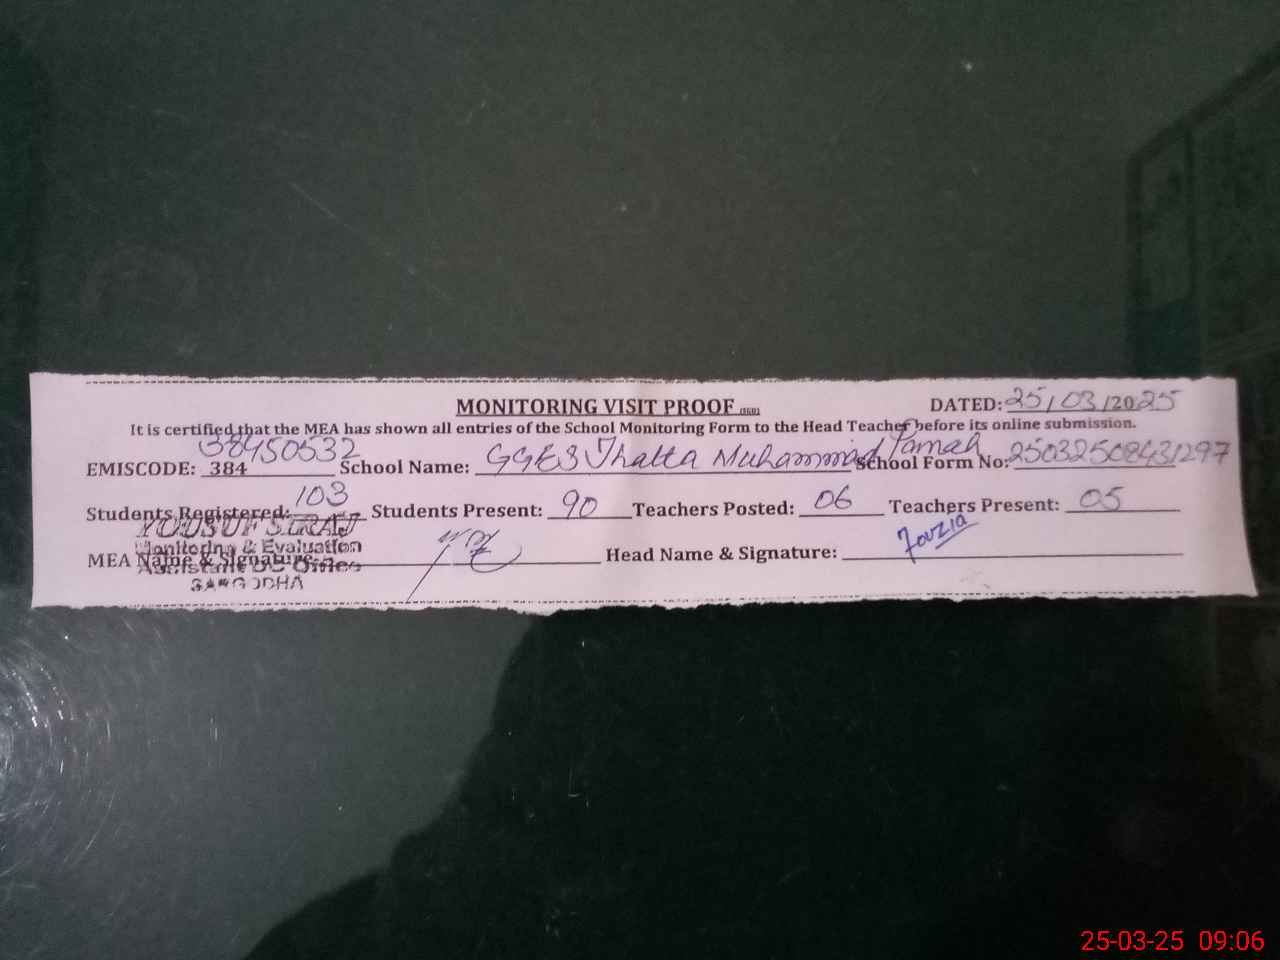 MONITORING VISIT PROOF (SGD) DATED: 25/03/2025
It is certified that the MEA has shown all entries of the School Monitoring Form to the Head Teacher before its online submission.
EMISCODE: 384 38450532 School Name: GGES Thatta Muhammad Panah School Form No: 25032508431297
Students Registered: 103 Students Present: 90 Teachers Posted: 06 Teachers Present: 05
YOUSUF SIRAJ
Monitoring & Evaluation
MEA Name & Signature: Head Name & Signature: Fouzia
Assistant DC Office
SARGODHA
25-03-25 09:06